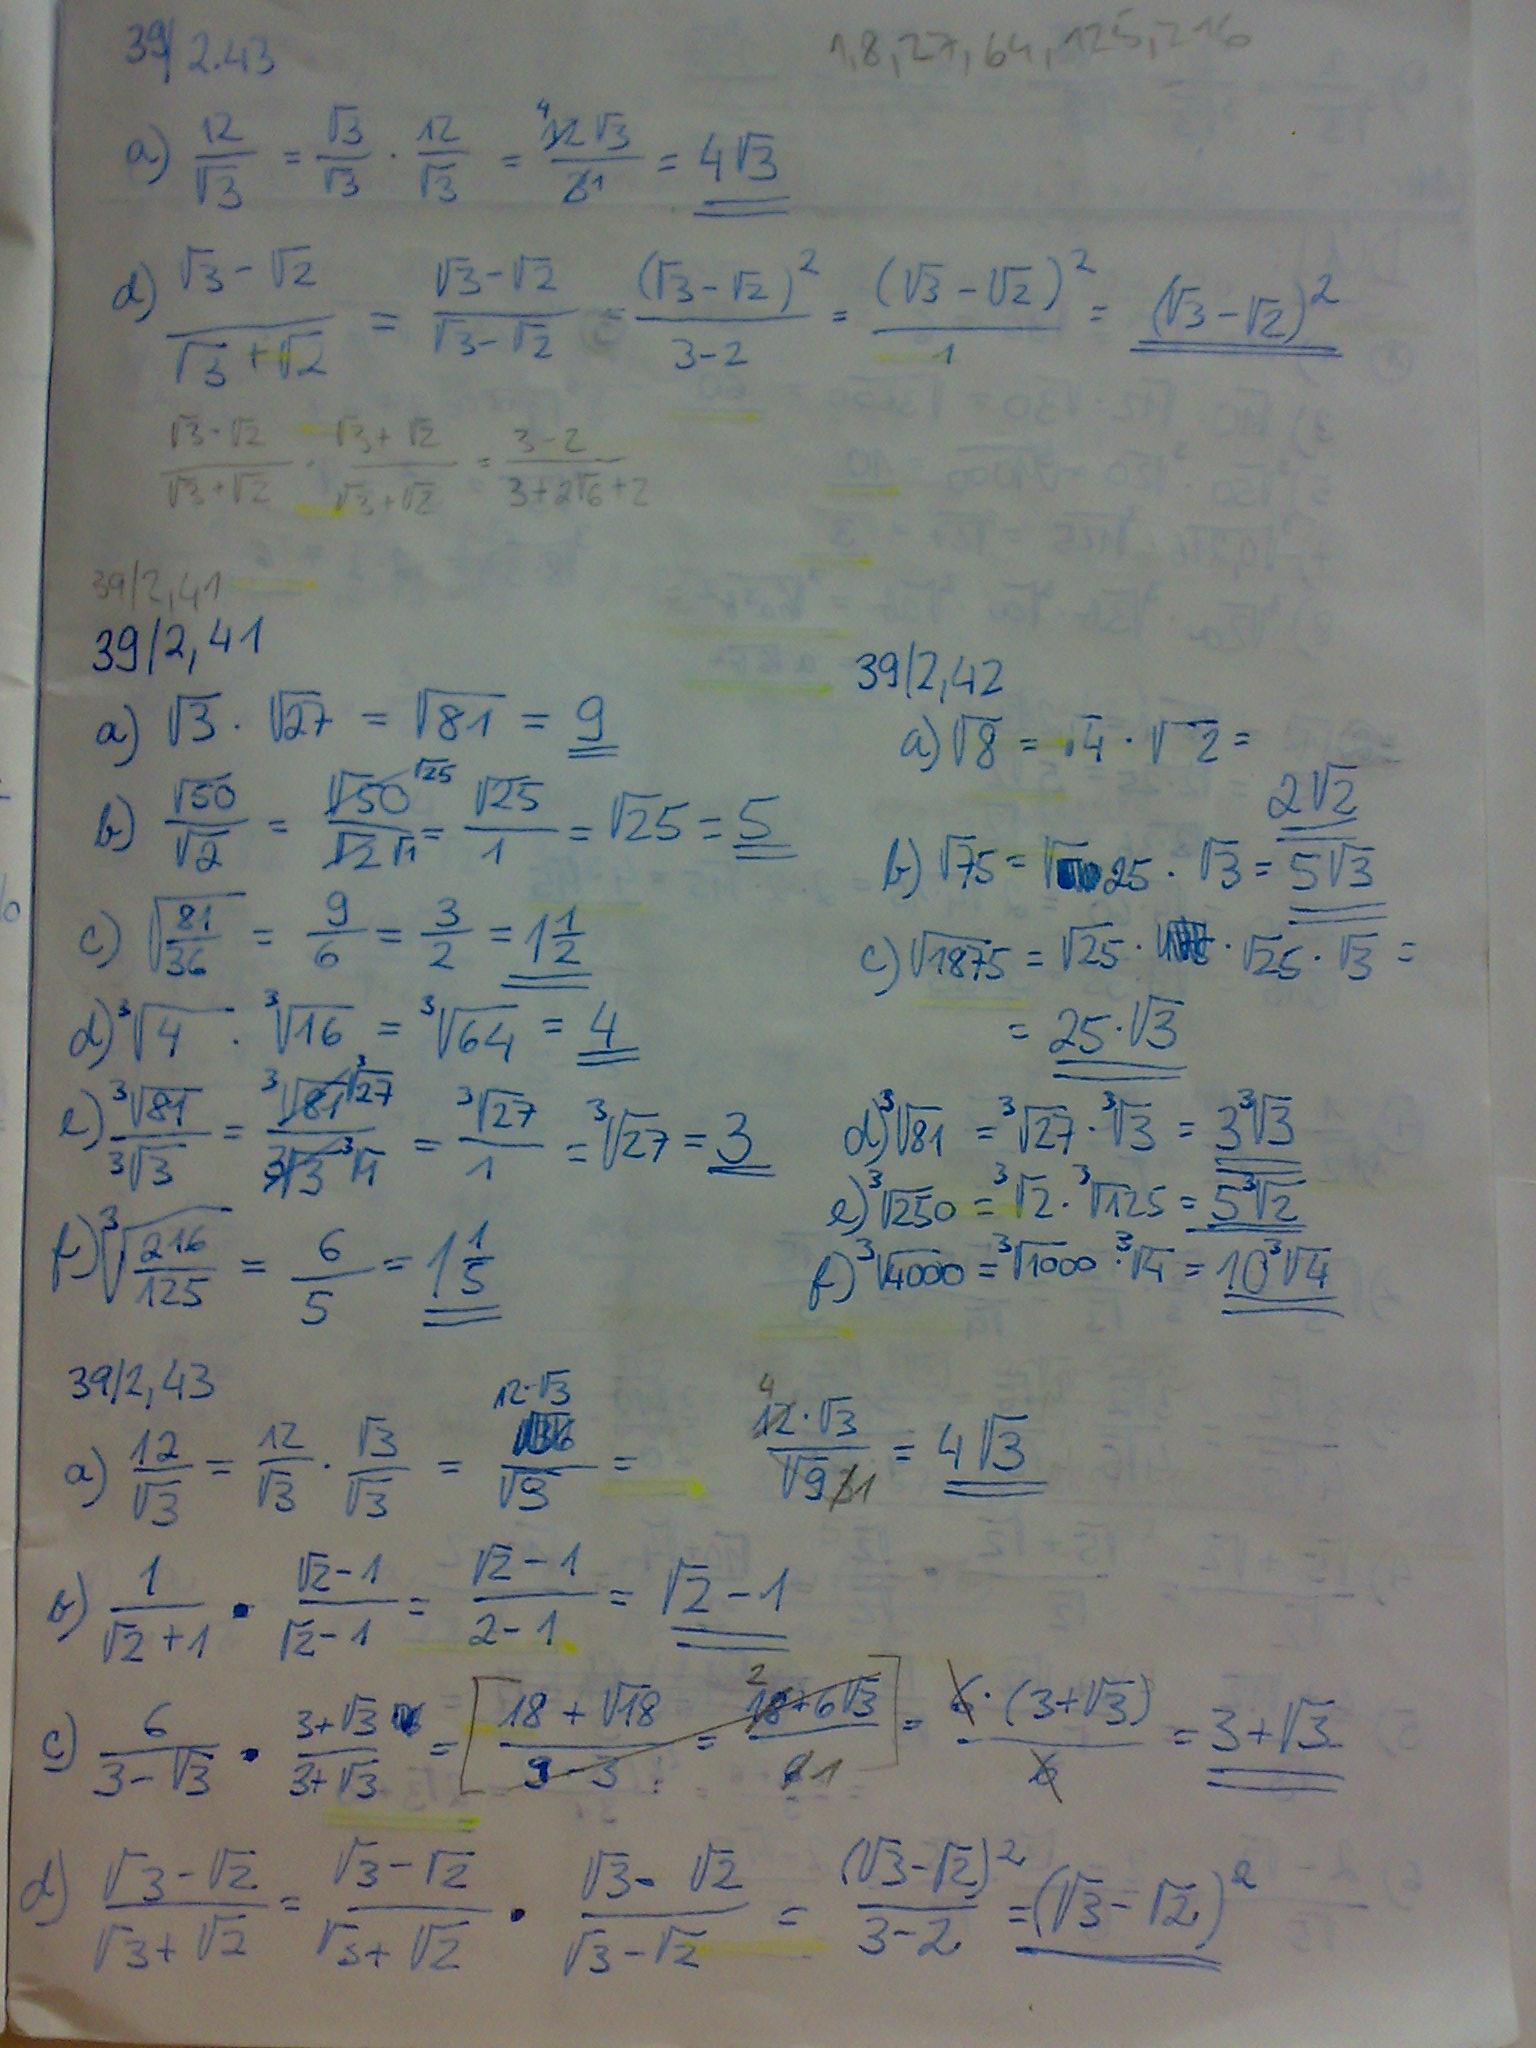 39/2.43
1,8,27,64,125,216
a) 12/√3 = √3/√3 · 12/√3 = 4 12√3/3 1 = 4√3
d) (√3-√2)/(√3+√2) = (√3-√2)/(√3-√2) = (√3-√2)²/(3-2) = (√3-√2)²/1 = (√3-√2)²
(√3-√2)/(√3+√2) · (√3+√2)/(√3+√2) = (3-2)/(3+2√6+2)
39/2,41
39/2,41
a) √3 · √27 = √81 = 9
b) √50/√2 = √50 √25/√2 √1 = √25/1 = √25 = 5
c) √(81/36) = 9/6 = 3/2 = 1 1/2
d) ³√4 · ³√16 = ³√64 = 4
e) ³√81/³√3 = ³√81 ³√27/³√3 ³√1 = ³√27/1 = ³√27 = 3
f) ³√(216/125) = 6/5 = 1 1/5
39/2,42
a) √8 = √4 · √2 =
2√2
b) √75 = √25 · √3 = 5√3
c) √1875 = √25 · √25 · √3 =
= 25·√3
d) ³√81 = ³√27 · ³√3 = 3³√3
e) ³√250 = ³√2 · ³√125 = 5³√2
f) ³√4000 = ³√1000 · ³√4 = 10³√4
39/2,43
a) 12/√3 = 12/√3 · √3/√3 = 12·√3/√9 = 4 12·√3/√9 3 1 = 4√3
b) 1/(√2+1) · (√2-1)/(√2-1) = (√2-1)/(2-1) = √2-1
c) 6/(3-√3) · (3+√3)/(3+√3) = [(18+√18)/(9-3) = 2 (18+6√3)/1] = 6·(3+√3)/6 = 3+√3
d) (√3-√2)/(√3+√2) = (√3-√2)/(√3+√2) · (√3-√2)/(√3-√2) = (√3-√2)²/(3-2) = (√3-√2)²